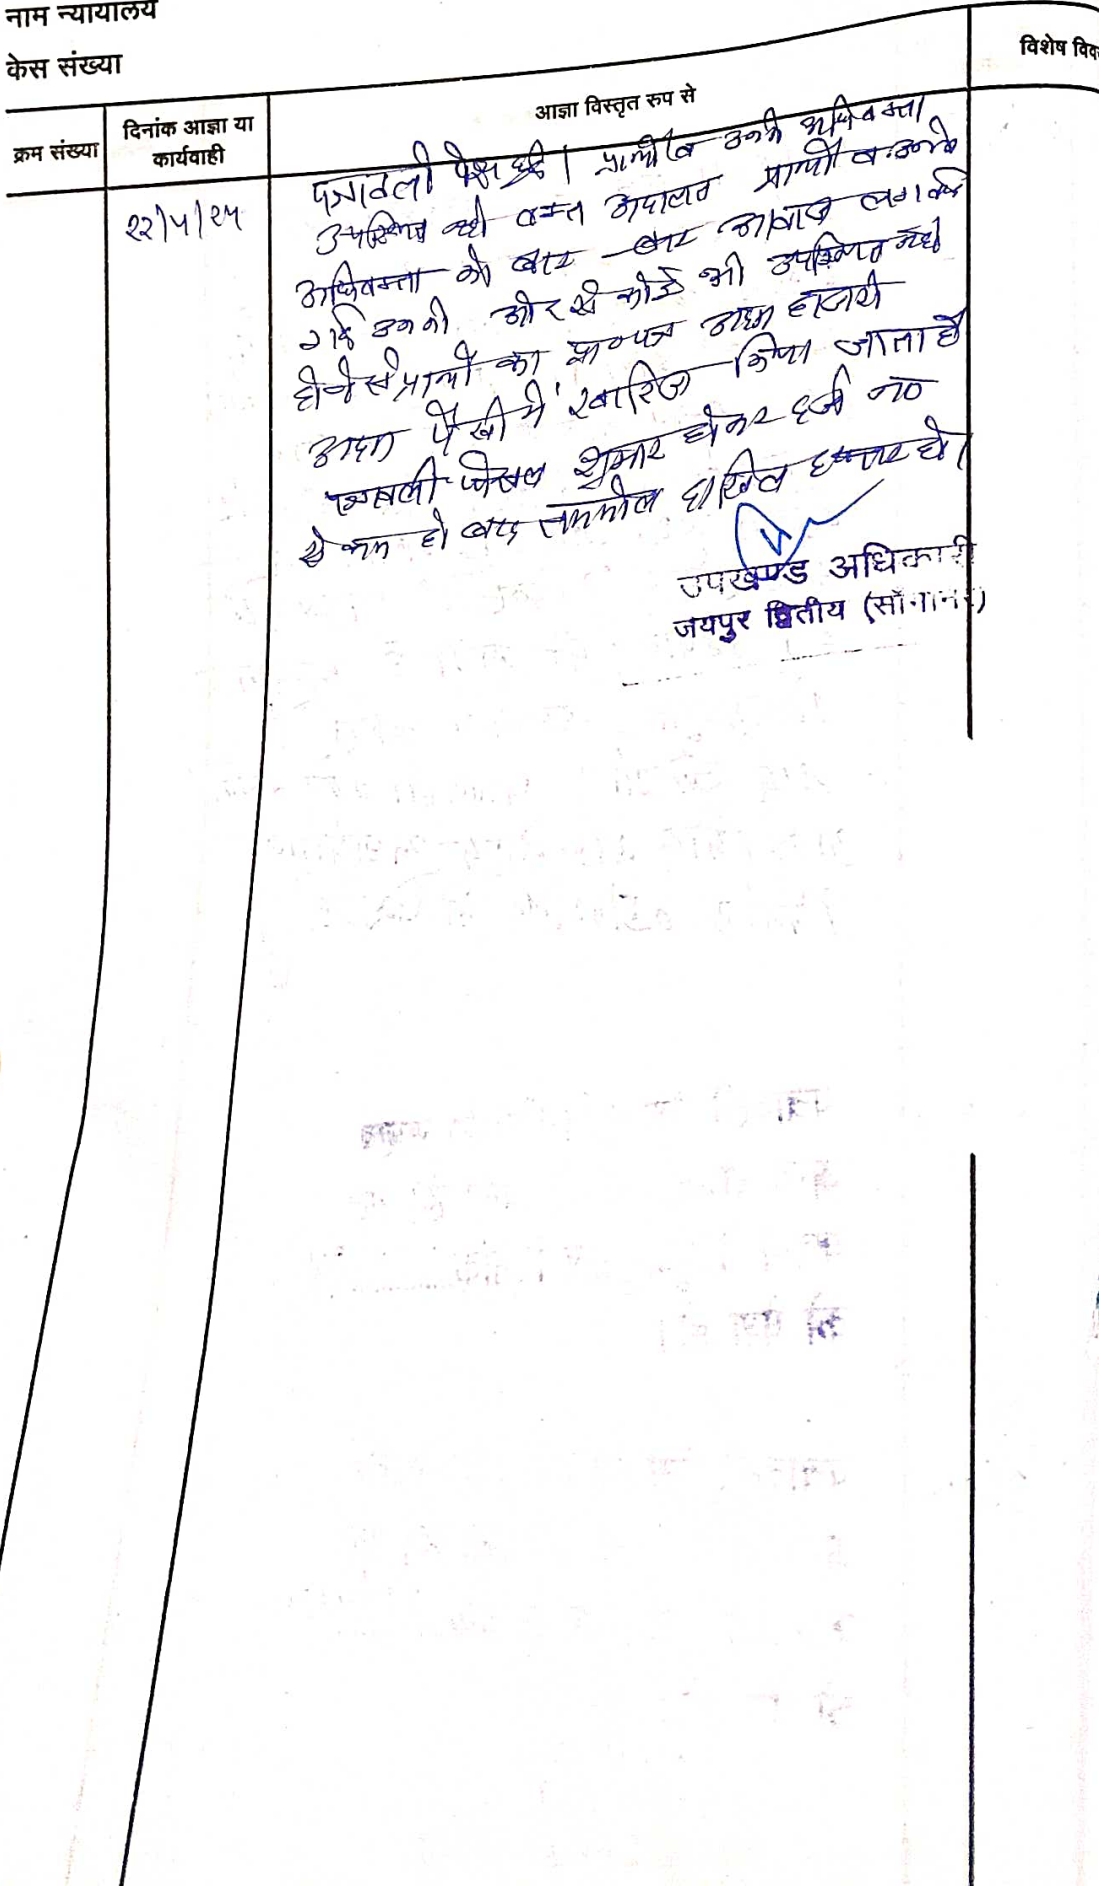 नाम न्यायालय
केस संख्या
क्रम संख्या
दिनांक आज्ञा या
कार्यवाही
आज्ञा विस्तृत रुप से
विशेष विव
२२/५/२५
पत्रावली पेश हुई। प्रार्थी व उनके अधिवक्ता
उपस्थित नही वक्त अदालत प्रार्थी व उनके
अधिवक्ता को बार-बार आवाज लगवाई
गई उनकी ओर से कोई भी उपस्थित नही
होने से प्रार्थी का प्रा०पत्र अदम हाजरी
अदम पैरवी में खारिज किया जाता है
पत्रावली फैसल शुमार होकर दर्ज न०
से कम हो बाद तकमील दाखिल दफ्तर हो।
उपखण्ड अधिकारी
जयपुर द्वितीय (सांगानेर)